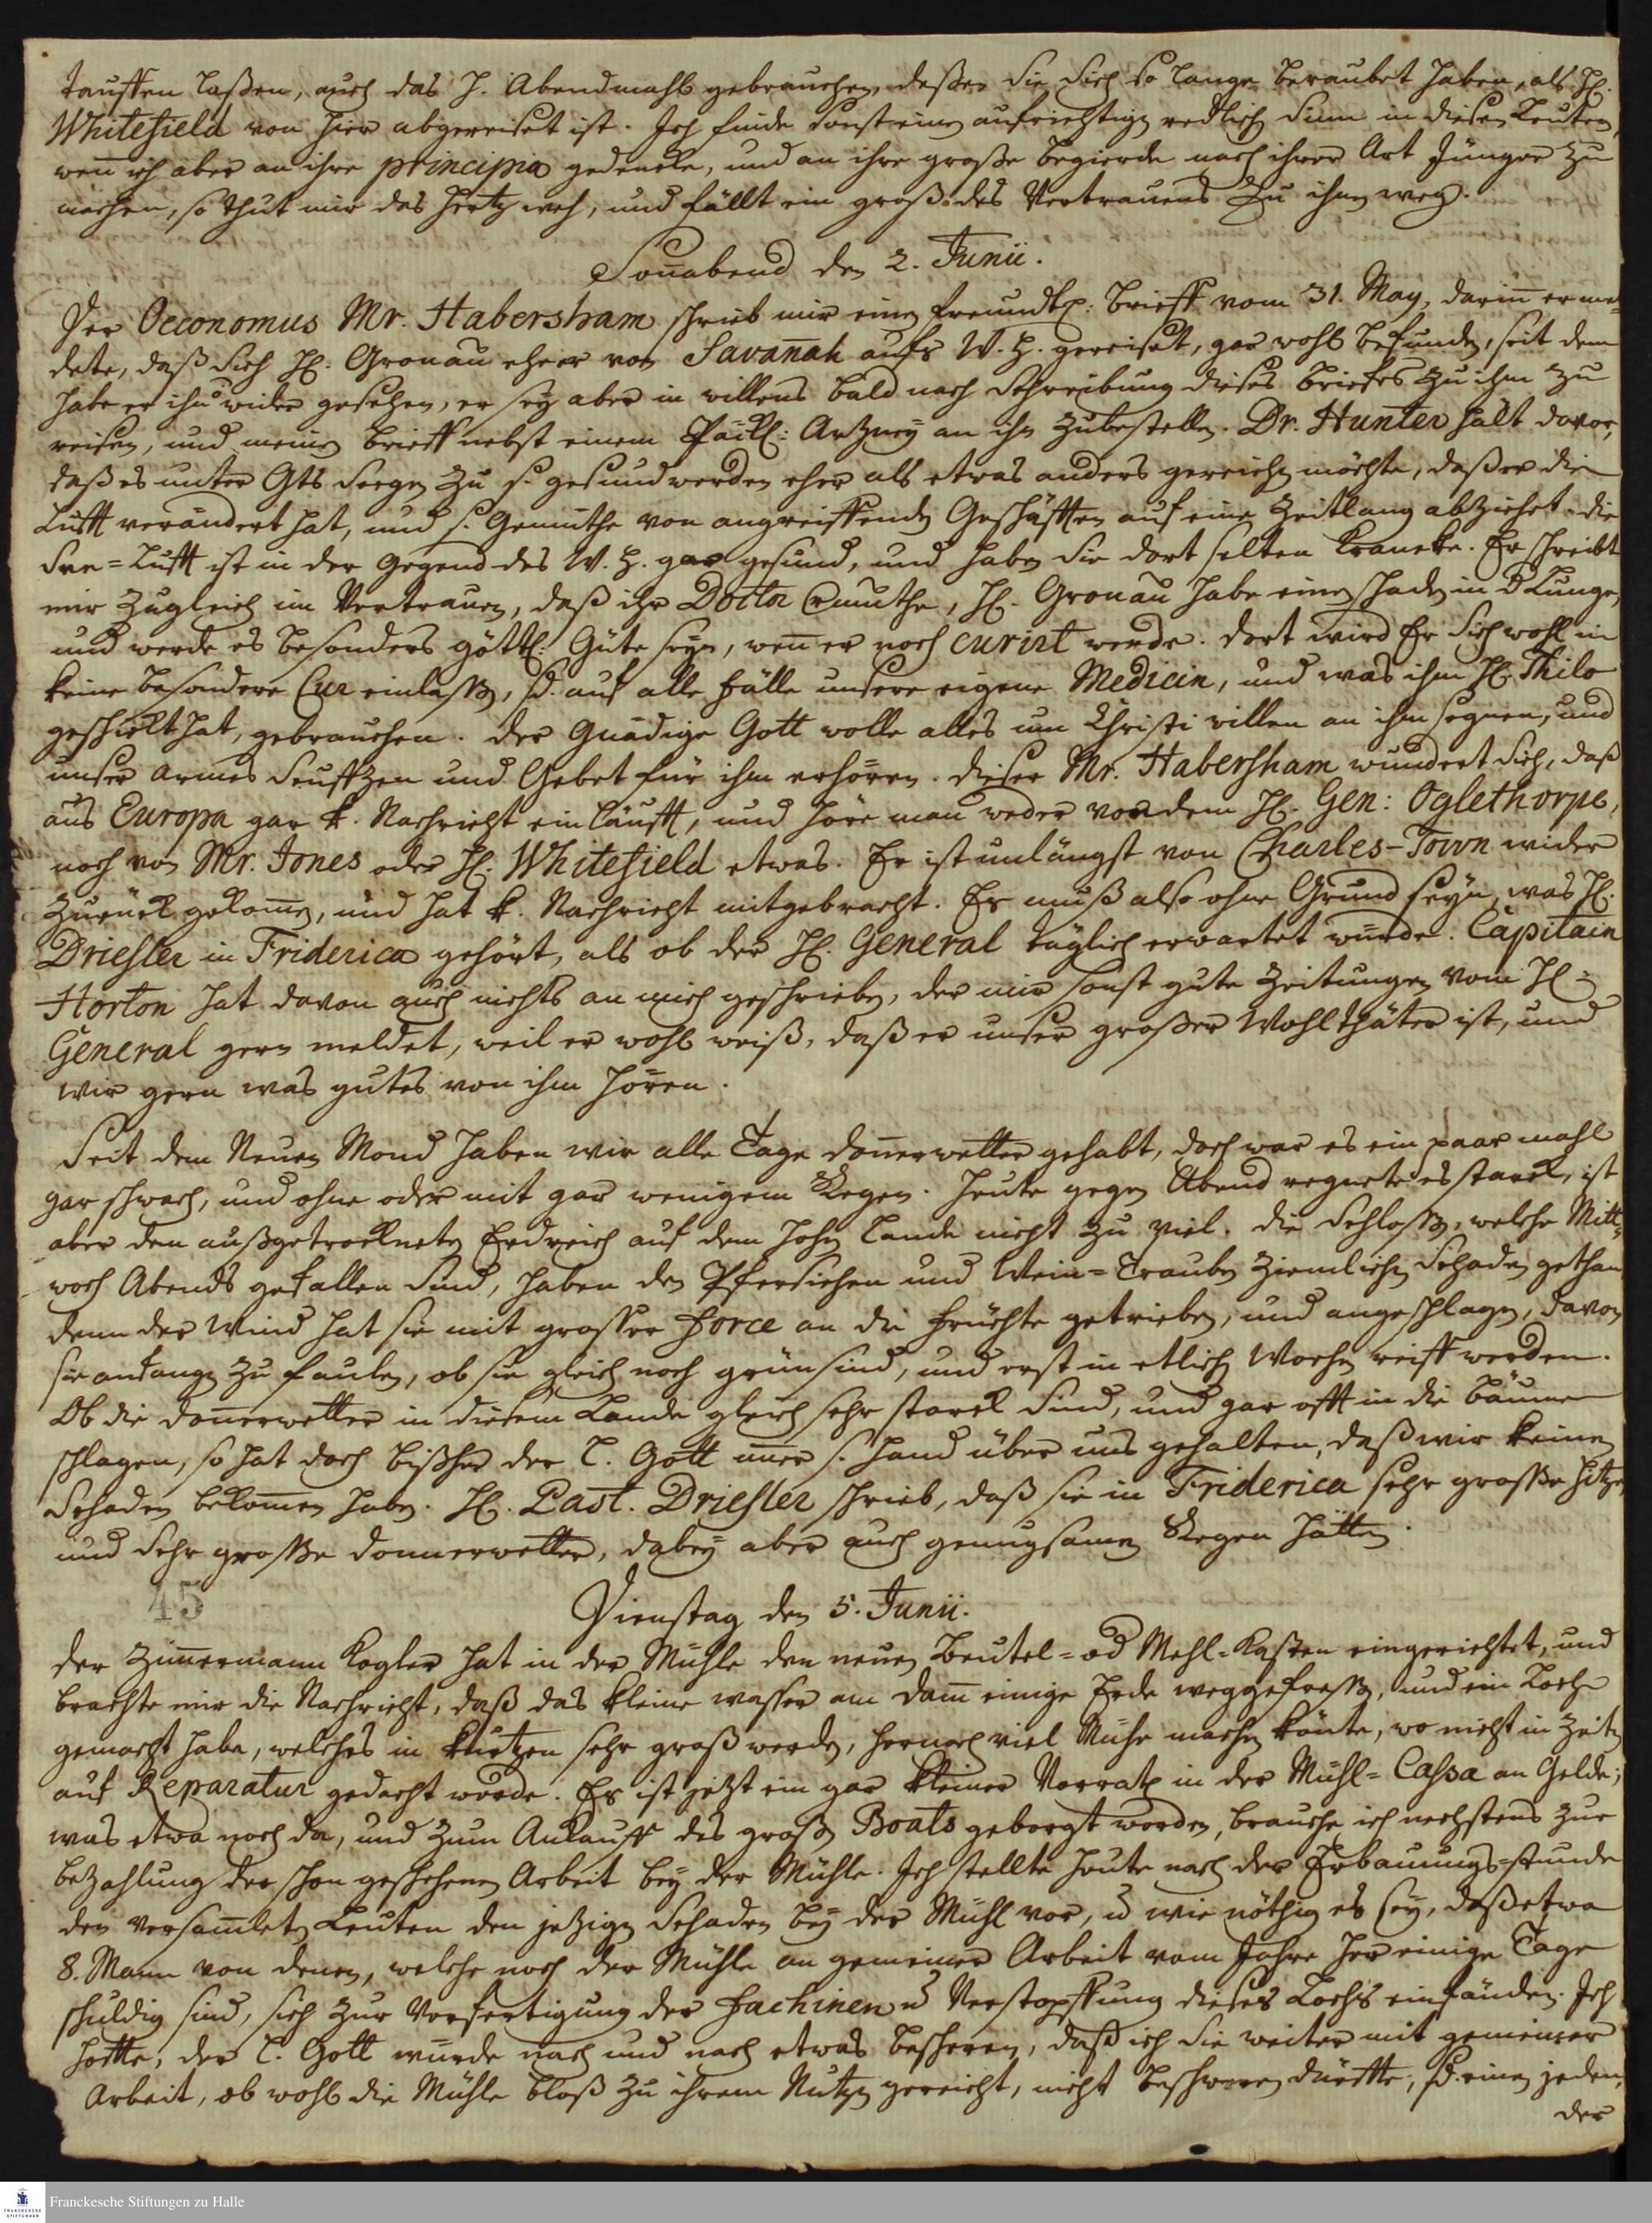 tauffen laßen, auch das H. Abendmahl gebrauchen, deßen sie sich so lange beraubet haben, als H.
Whitefield von hier abgereiset ist. Ich finde sonst einen aufrichtigen redlich Sinn in diesen Leuten,
wen̄ ich aber an ihre principia gedencke, und an ihre große Begierde nach ihrer Art Jünger zu
machen, so thut mir das Hertz weh, und fällt ein groß. des Vertrauens zu ihnen weg.
Son̄abend den 2. Junii.
Der Oeconomus Mr. Habersham schrieb mir einen freundl: Brieff vom 31. May, darin̄ er mel¬
dete, daß sich H. Gronau eher er von Savan̄ah aufs W. H. gereiset, gar wohl befunden, seit dem
habe er ihn wider gesehen, er sey aber in willens bald nach Schreibung dieses Briefes zu ihm zu
reisen, und meinen Brieff nebst einem Päckl: Artzney an ihn zubestellen. Dr. Hunter hält davor,
daß es unter Gottes Seegen zu s. gesundwerden eher als etwas anders gereichen möchte, daß er die
Lufft verändert hat, und s. Gemüthe von angreiffenden Geschäfften auf eine Zeitlang abziehet. die
See=Lufft ist in der Gegend des W. H. gar gesund, und haben sie dort selten Krancke. Er schreibt
mir zugleich im Vertrauen, daß ihr Doctor vermuthe, H. Gronau habe einen Schaden in d Lunge,
und werde es besonders göttl: Güte seyn, wen̄ er noch curirt werde. Dort wird Er sich wohl in
keine besondere Cur einlaßen, sd. auf alle Fälle unsere eigene Medicin, und was ihm H. Thilo
geschickt hat, gebrauchen. Der Gnädige Gott wolle alles um Christi willen an ihm segnen, und
unser armes Seuffzen und Gebet für ihm erhören. Dieser Mr. Habersham wundert sich, daß
aus Europa gar k. Nachricht einläufft, und höre man weder von dem H. Gen: Oglethorpe,
noch von Mr. Jones oder H. Whitefield etwas. Er ist unlängst von Charles-Town wider
zurück gekom̄en, und hat k. Nachricht mitgebracht. Es muß also ohne Grund seyn, was H.
Driesler in Friderica gehört, als ob der H. General täglich erwartet würde. Capitain
Horton hat davon auch nichts an mich geschrieben, der mir sonst gute Zeitungen vom H.
General gern meldet, weil er wohl weiß, daß er unser großer Wohlthäter ist, und
wir gern was gutes von ihm hören.
Seit dem Neuen Mond haben wir alle Tage Don̄erwetter gehabt, doch war es ein paar mahl
gar schwach, und ohne oder mit gar wenigem Regen. Heute gegen Abend regnete es starck, ist
aber dem außgetrockneten Erdreich auf dem hohen Lande nicht zu viel. Die Schloßen, welche Mitt¬
woch Abends gefallen sind, haben den Pfersichen und Wein=Trauben ziemlichen Schaden gethan
denn der Wind hat sie mit grosser Force an die Früchte getrieben, und angeschlagen, davon
sie anfangen zu faulen, ob sie gleich noch grün sind, und erst in etlichen Wochen reiff werden.
Ob die Don̄erwetter in diesem Lande gleich sehr starck sind, und gar offt in die Bäume
schlagen, so hat doch bißher der l. Gott im̄er s. Hand über uns gehalten, daß wir keinen
Schaden bekom̄en haben. H. Past. Driesler schrieb, daß sie in Friderica sehr grosse Hitze,
und sehr grosse Donnerwetter, dabey aber auch genugsamen Regen hätten.
45
Dienstag den 5. Junii.
Der Zim̄ermann Kogler hat in der Mühle den neuen Beutel= od Mehl=Kasten eingerichtet, und
brachte mir die Nachricht, daß das kleine wasser am Dam̄ einige Erde weggefressen, und ein Loch
gemacht habe, welches in kurtzen sehr groß werden, hernach viel Mühe machen könte, wo nicht in Zeiten
auf Reparatur gedacht würde. Es ist jetzt ein gar kleiner Vorrath in der Mühl=Cassa an Gelde;
was etwa noch da, und zum Ankauff des großen Boats geborgt worden, brauche ich nechstens zur
Bezahlung der schon geschehenen Arbeit bey der Mühle. Ich stellte heute nach der Erbauungs=stunde
den versam̄leten Leuten den jetzigen Schaden bey der Mühl vor, u. wie nöthig es sey, daß etwa
8. Mann von denen, welche noch der Mühle an gemeiner Arbeit vom Jahre her einige Tage
schuldig sind, sich zur Verfertigung der Fachinen u. Verstopffung dieses Lochs einfänden. Ich
hoffte, der l. Gott würde nach und nach etwas bescheren, daß ich sie weiter mit gemeiner
Arbeit, ob wohl die Mühle bloß zu ihrem Nutzen gereicht, nicht beschweren dürffte, sd. einen jeden,
der
Franckesche Stiftungen zu Halle